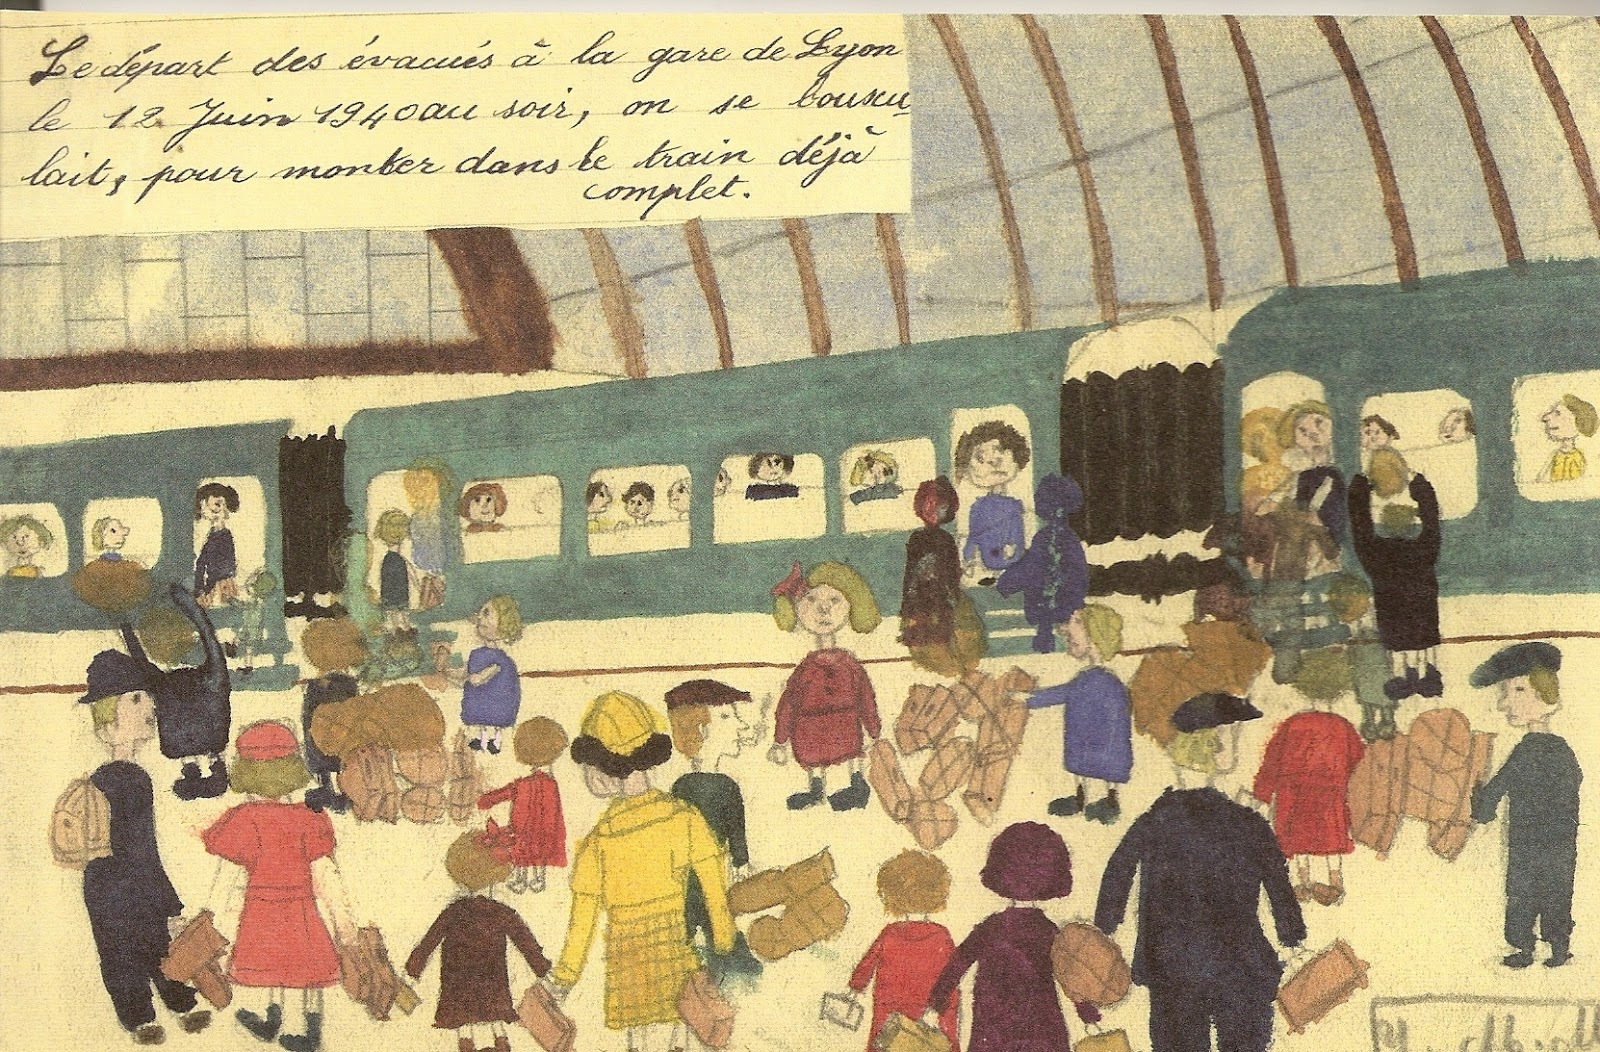 Le départ des évacués à la gare de Lyon
le 12 Juin 1940 au soir, on se bouscu
lait, pour monter dans le train déjà
complet.